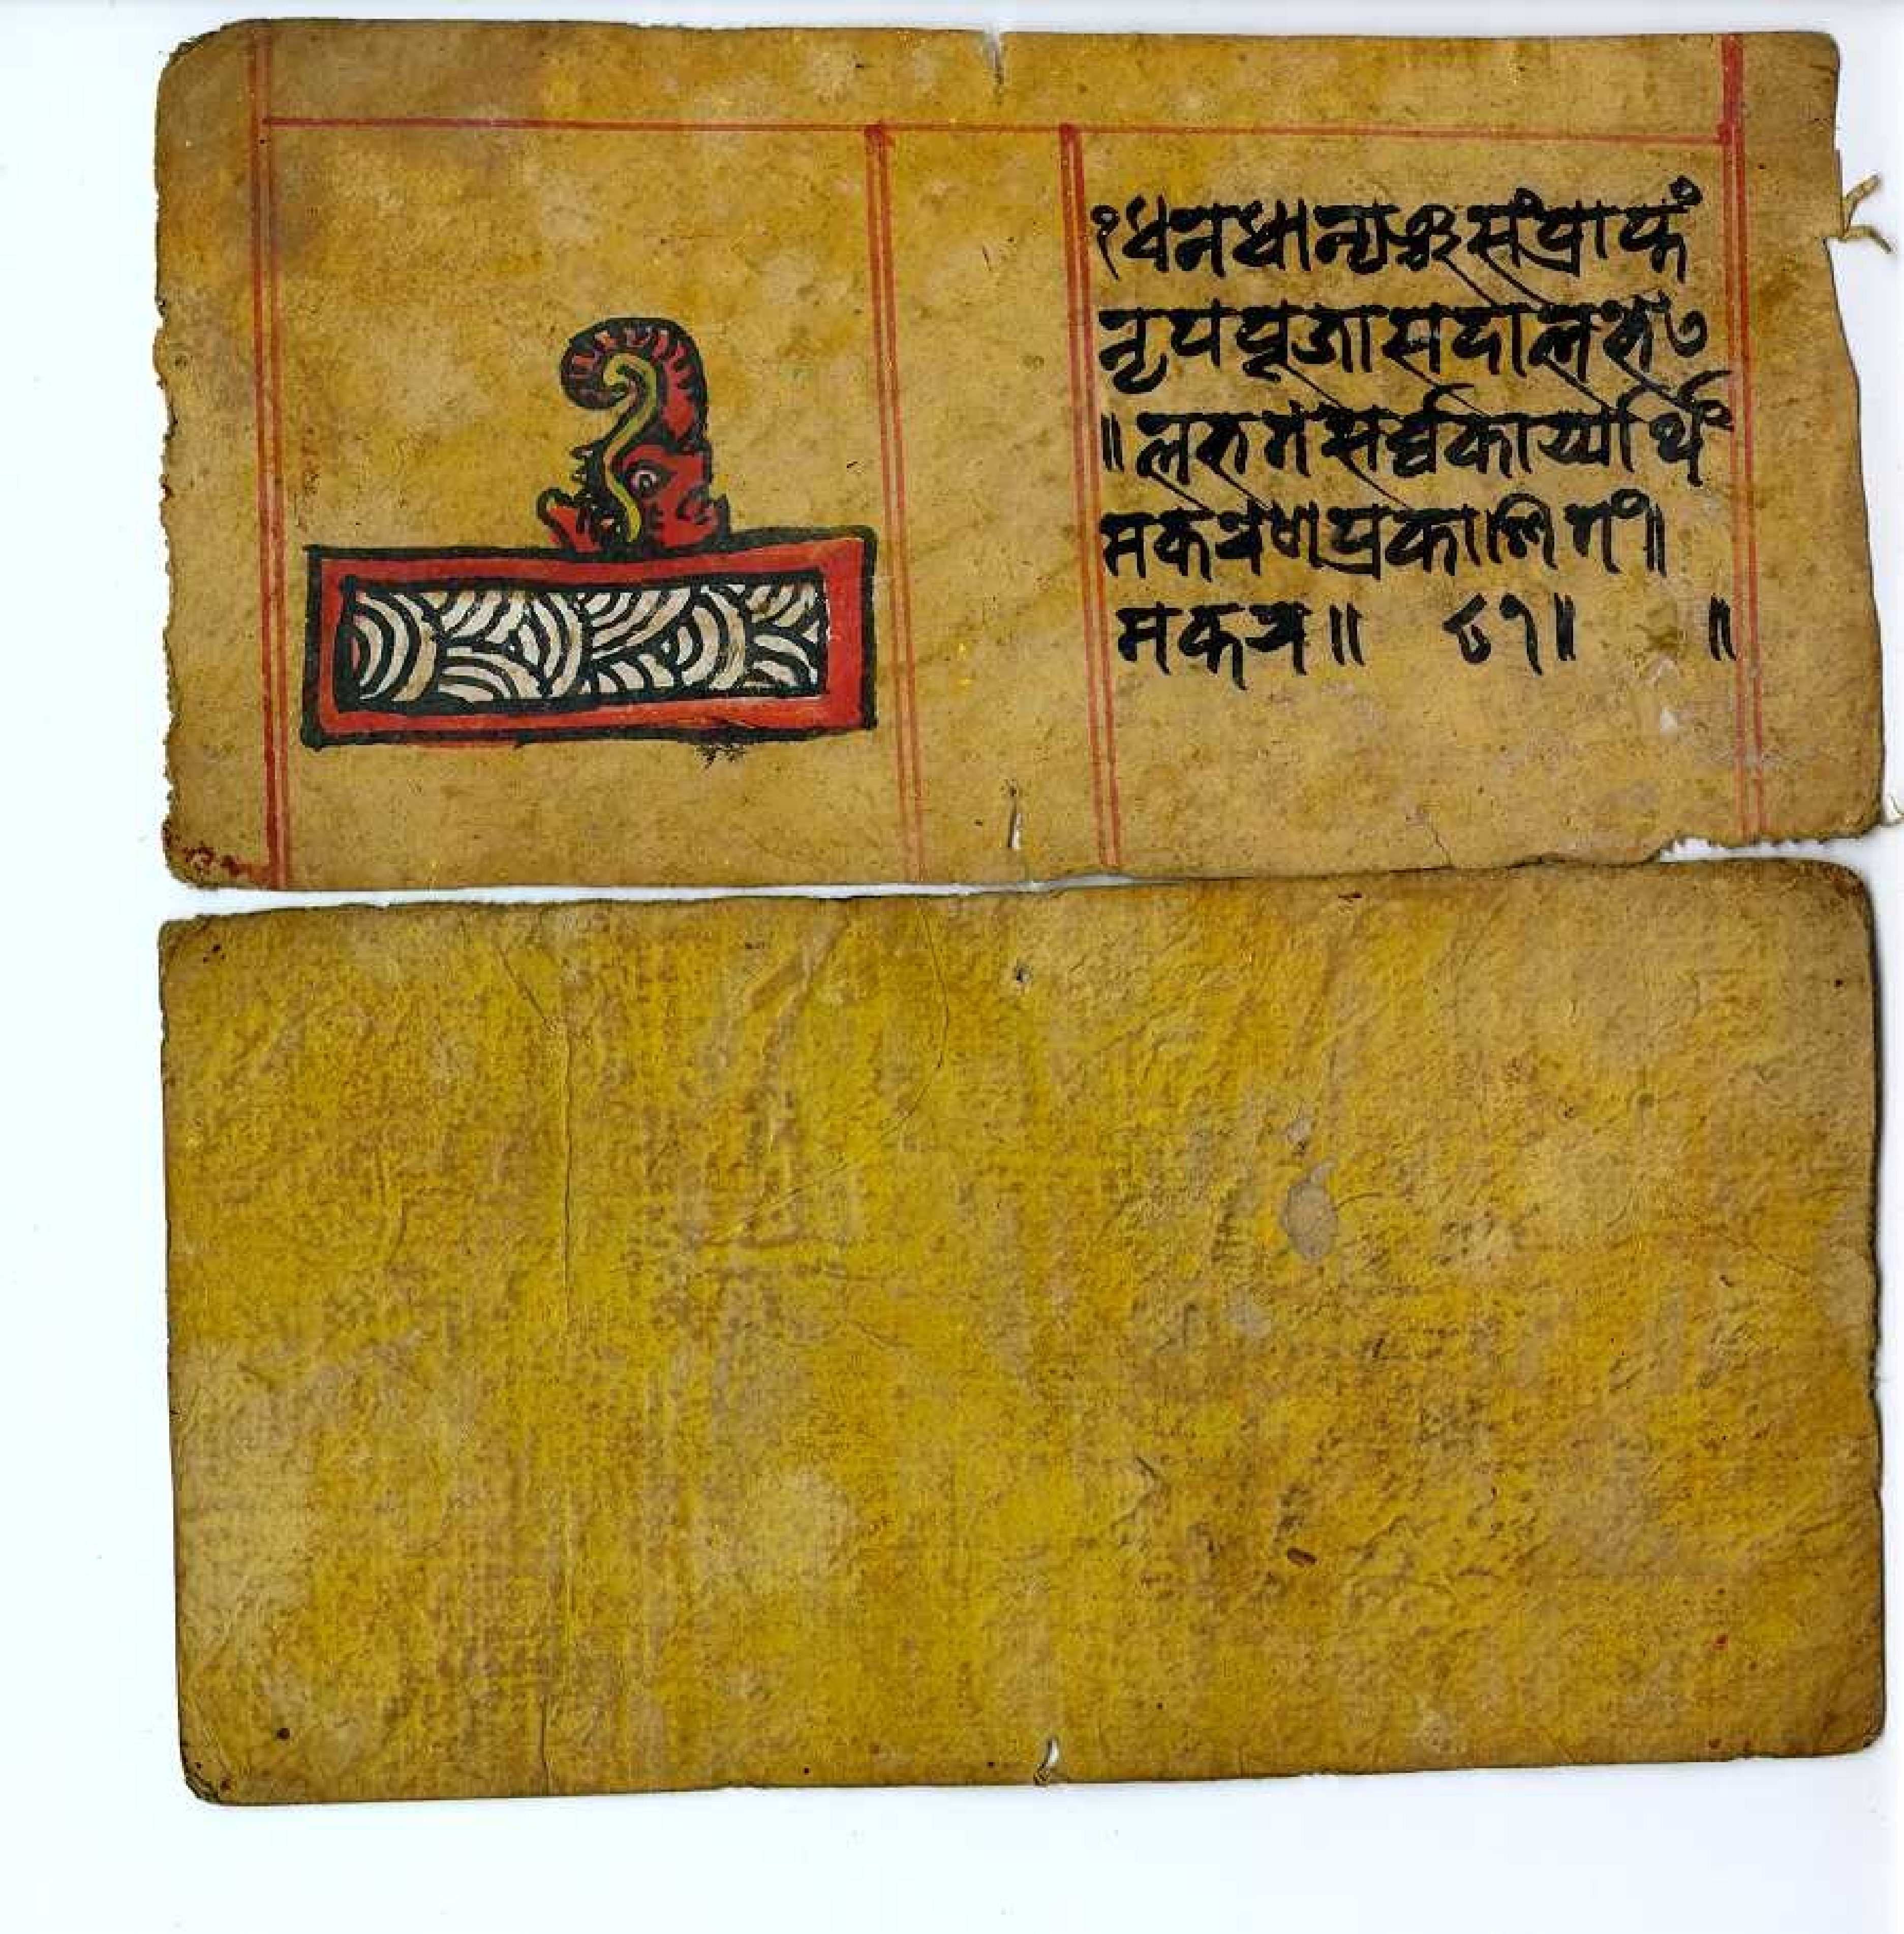 १धनधान्यञ्चसंप्राप्तं
नृपपूजासदालभत्
॥लभतसर्व्वकार्य्यार्थं
मकरणप्रकाशितं॥
मकर॥ ८१॥ ॥